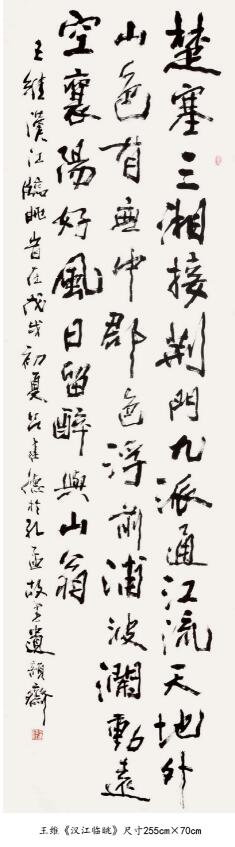 楚塞三湘接荆門九派通江流天地外
山色有無中郡邑浮前浦波瀾動遠
空襄陽好風日留醉與山翁
王維漢江臨眺 在戊戌初夏吕 德於孔孟故里遺 齋
王维《汉江临眺》尺寸255cm×70cm